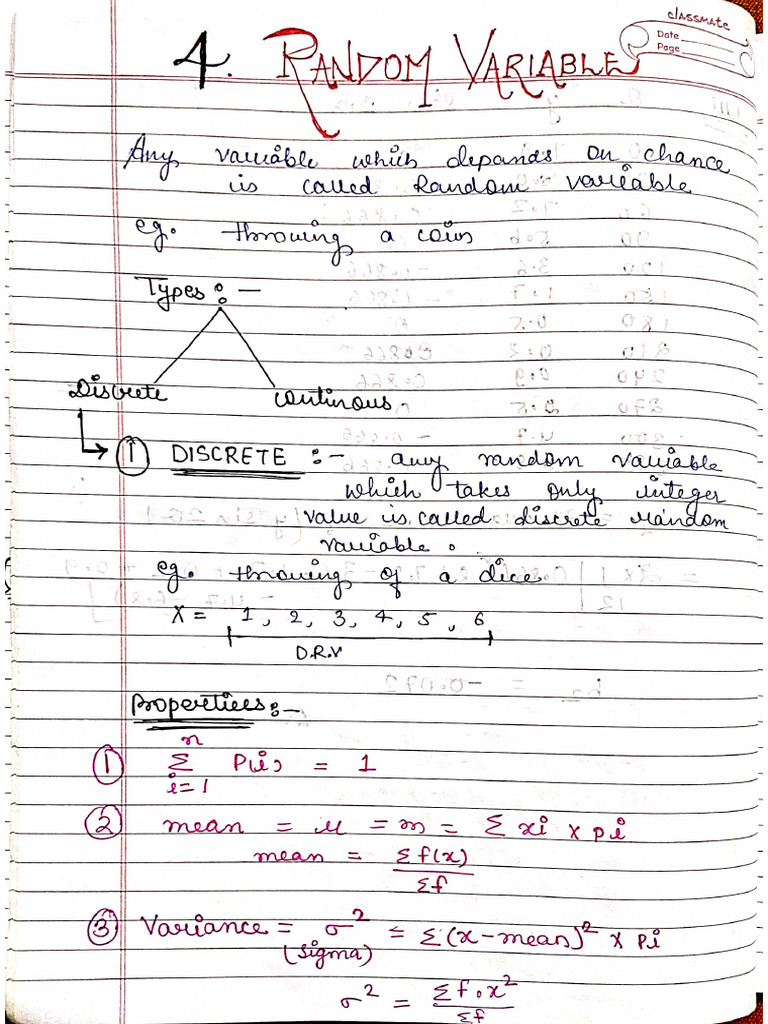 classmate
Date
Page
4. RANDOM VARIABLE
Any variable which depands on chance
is called Random variable
eg. throwing a coin
Types :-
Discrete continous
① DISCRETE :- any random variable
which takes only integer
value is called discrete random
variable.
eg. throwing of a dice
X = 1, 2, 3, 4, 5, 6
D.R.V
Propertiees:-
① n
Σ P(i) = 1
i=1
② mean = μ = m = Σ xi × pi
mean = Σf(x)
Σf
③ Variance = σ² = Σ(x-mean)² × Pi
(sigma)
σ² = Σf.x²
Σf